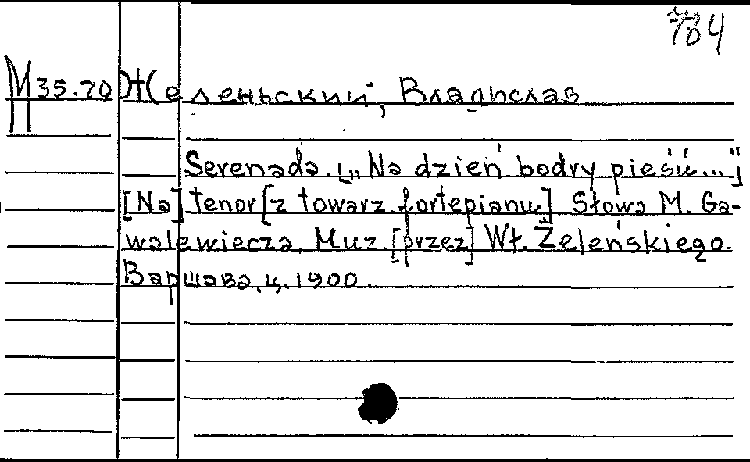 704
М 35.70 Желеньский, Владислав
Serenada. [„Na dzień bodry pieśń..."]
[Na] tenor [z towarz. fortepianu] Słowa M. Ga-
walewicza. Muz. [przez] Wł. Żeleńskiego.
Варшава, ц. 1900.